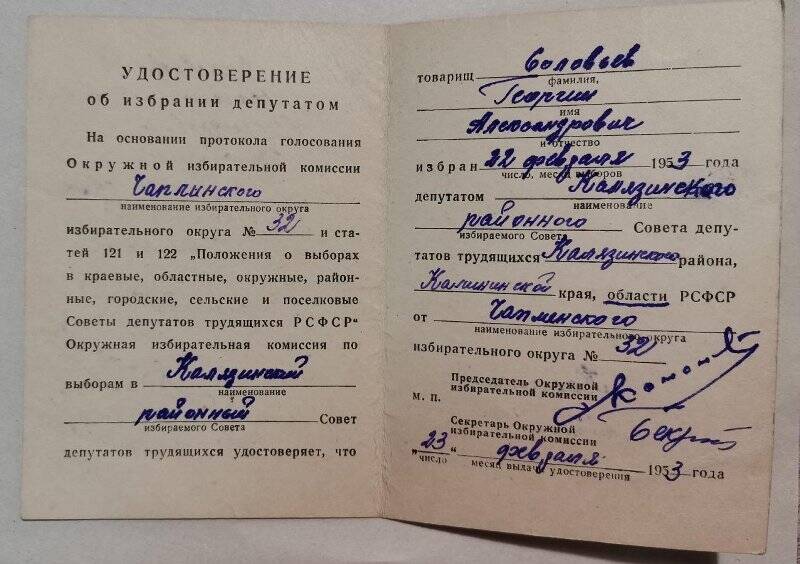 УДОСТОВЕРЕНИЕ
об избрании депутатом
На основании протокола голосования
Окружной избирательной комиссии
Чаплинского
наименование избирательного округа
избирательного округа № 32 и ста-
тей 121 и 122 „Положения о выборах
в краевые, областные, окружные, район-
ные, городские, сельские и поселковые
Советы депутатов трудящихся РСФСР“
Окружная избирательная комиссия по
выборам в Калязинский
наименование
районный Совет
избираемого Совета
депутатов трудящихся удостоверяет, что
товарищ Соловьев
фамилия,
Георгий
имя
Александрович
и отчество
избран 22 февраля 1953 года
число, месяц выборов
депутатом Калязинского
наименование
районного Совета депу-
избираемого Совета
татов трудящихся Калязинского района,
Калининской края, области РСФСР
от Чаплинского
наименование избирательного округа
избирательного округа № 32
Председатель Окружной
избирательной комиссии
М. П.
Секретарь Окружной
избирательной комиссии
„23“ февраля 1953 года
число месяц выдачи удостоверения